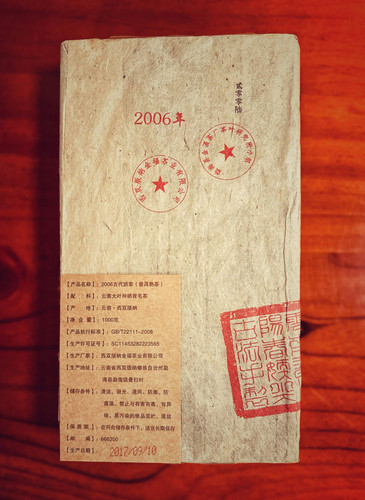 貳零零陸
2006年
西双版纳金福茶业有限公司
【产品名称】：2006古代（普洱熟茶）
【配　　料】：云南大叶种晒青毛茶
【产　　地】：云南·西双版纳
【净 含 量】：1000克
【产品执行标准】：GB/T22111-2008
【生产许可证号】：SC11453282223565
【生产厂家】：西双版纳金福茶业有限公司
【生产地址】：云南省西双版纳傣族自治州勐
海县勐海镇
【储存条件】：清洁、避光、通风、防潮、防
高温、禁止与有害有毒、有异
味、易污染的物品混贮、混放
【保 质 期】：在符合储存条件下，适宜长期保存
【邮　　编】：666200
【生产日期】：2017/09/10